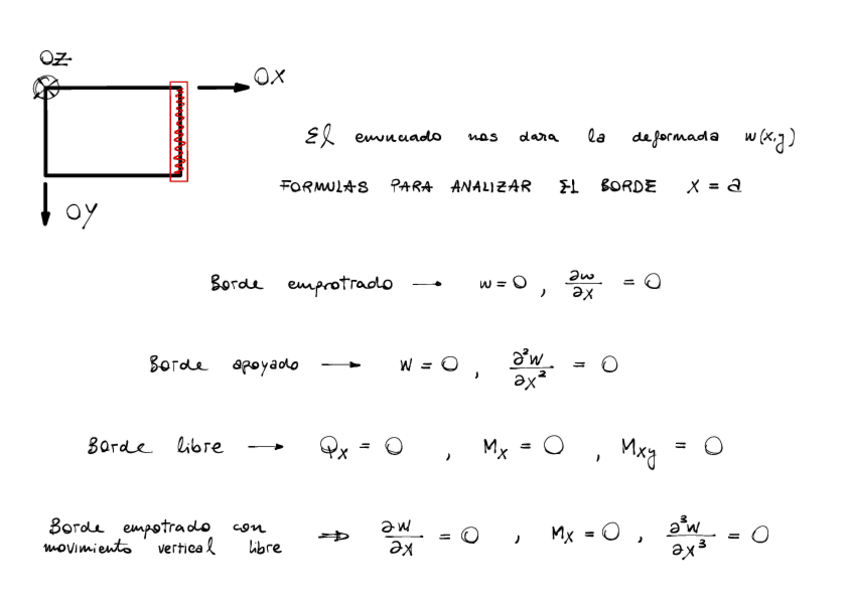 OZ
OX
OY
El enunciado nos dara la deformada w(x,y)
FORMULAS PARA ANALIZAR EL BORDE X = a
Borde emprotrado → w = 0 , ∂w/∂x = 0
Borde apoyado → w = 0 , ∂²w/∂x² = 0
Borde libre → Qx = 0 , Mx = 0 , Mxy = 0
Borde empotrado con
movimiento vertical libre ⇒ ∂w/∂x = 0 , Mx = 0 , ∂³w/∂x³ = 0